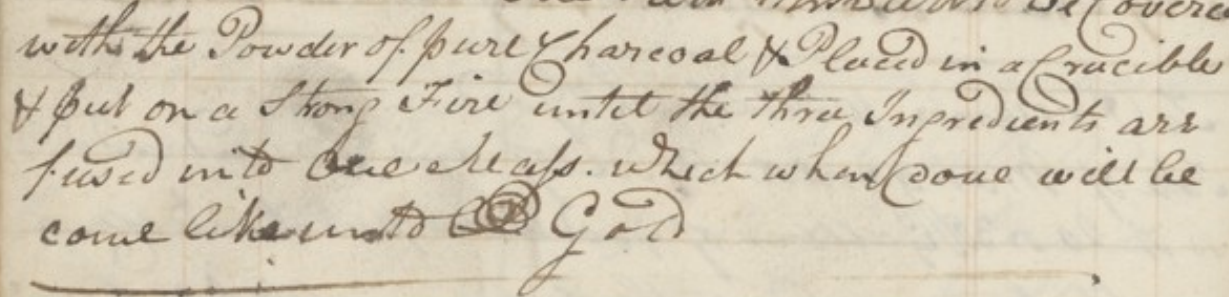 be Covered
with the Powder of pure Charcoal & Placed in a Crucible
& put on a Strong Fire until the three Ingredients are
fused into one Mass. Which when done will be
come like unto God